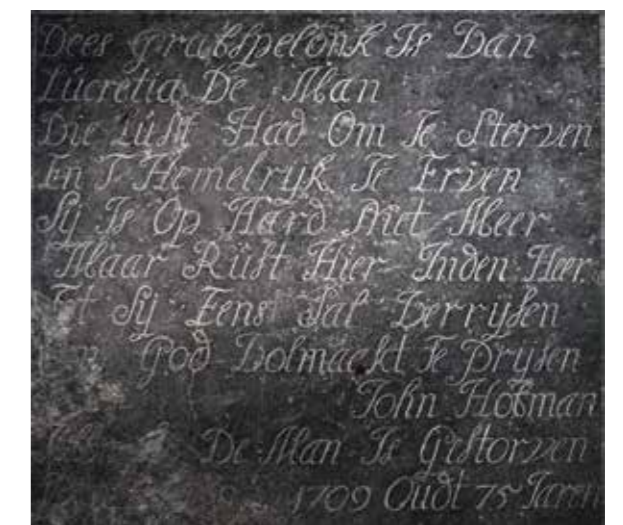 Dees grafspelonk Is Van
Lucretia De Man
Die Lust Had Om Te Sterven
En T Hemelryk Te Erven
Sy Is Op Aard Niet Meer
Maar Rust Hier Inden Heer
Tot Sy Eens Sal Verrysen
Om God Volmaeckt Te Prysen
John Hofman
De Man Is Gestorven
1709 Oudt 75 Jaren